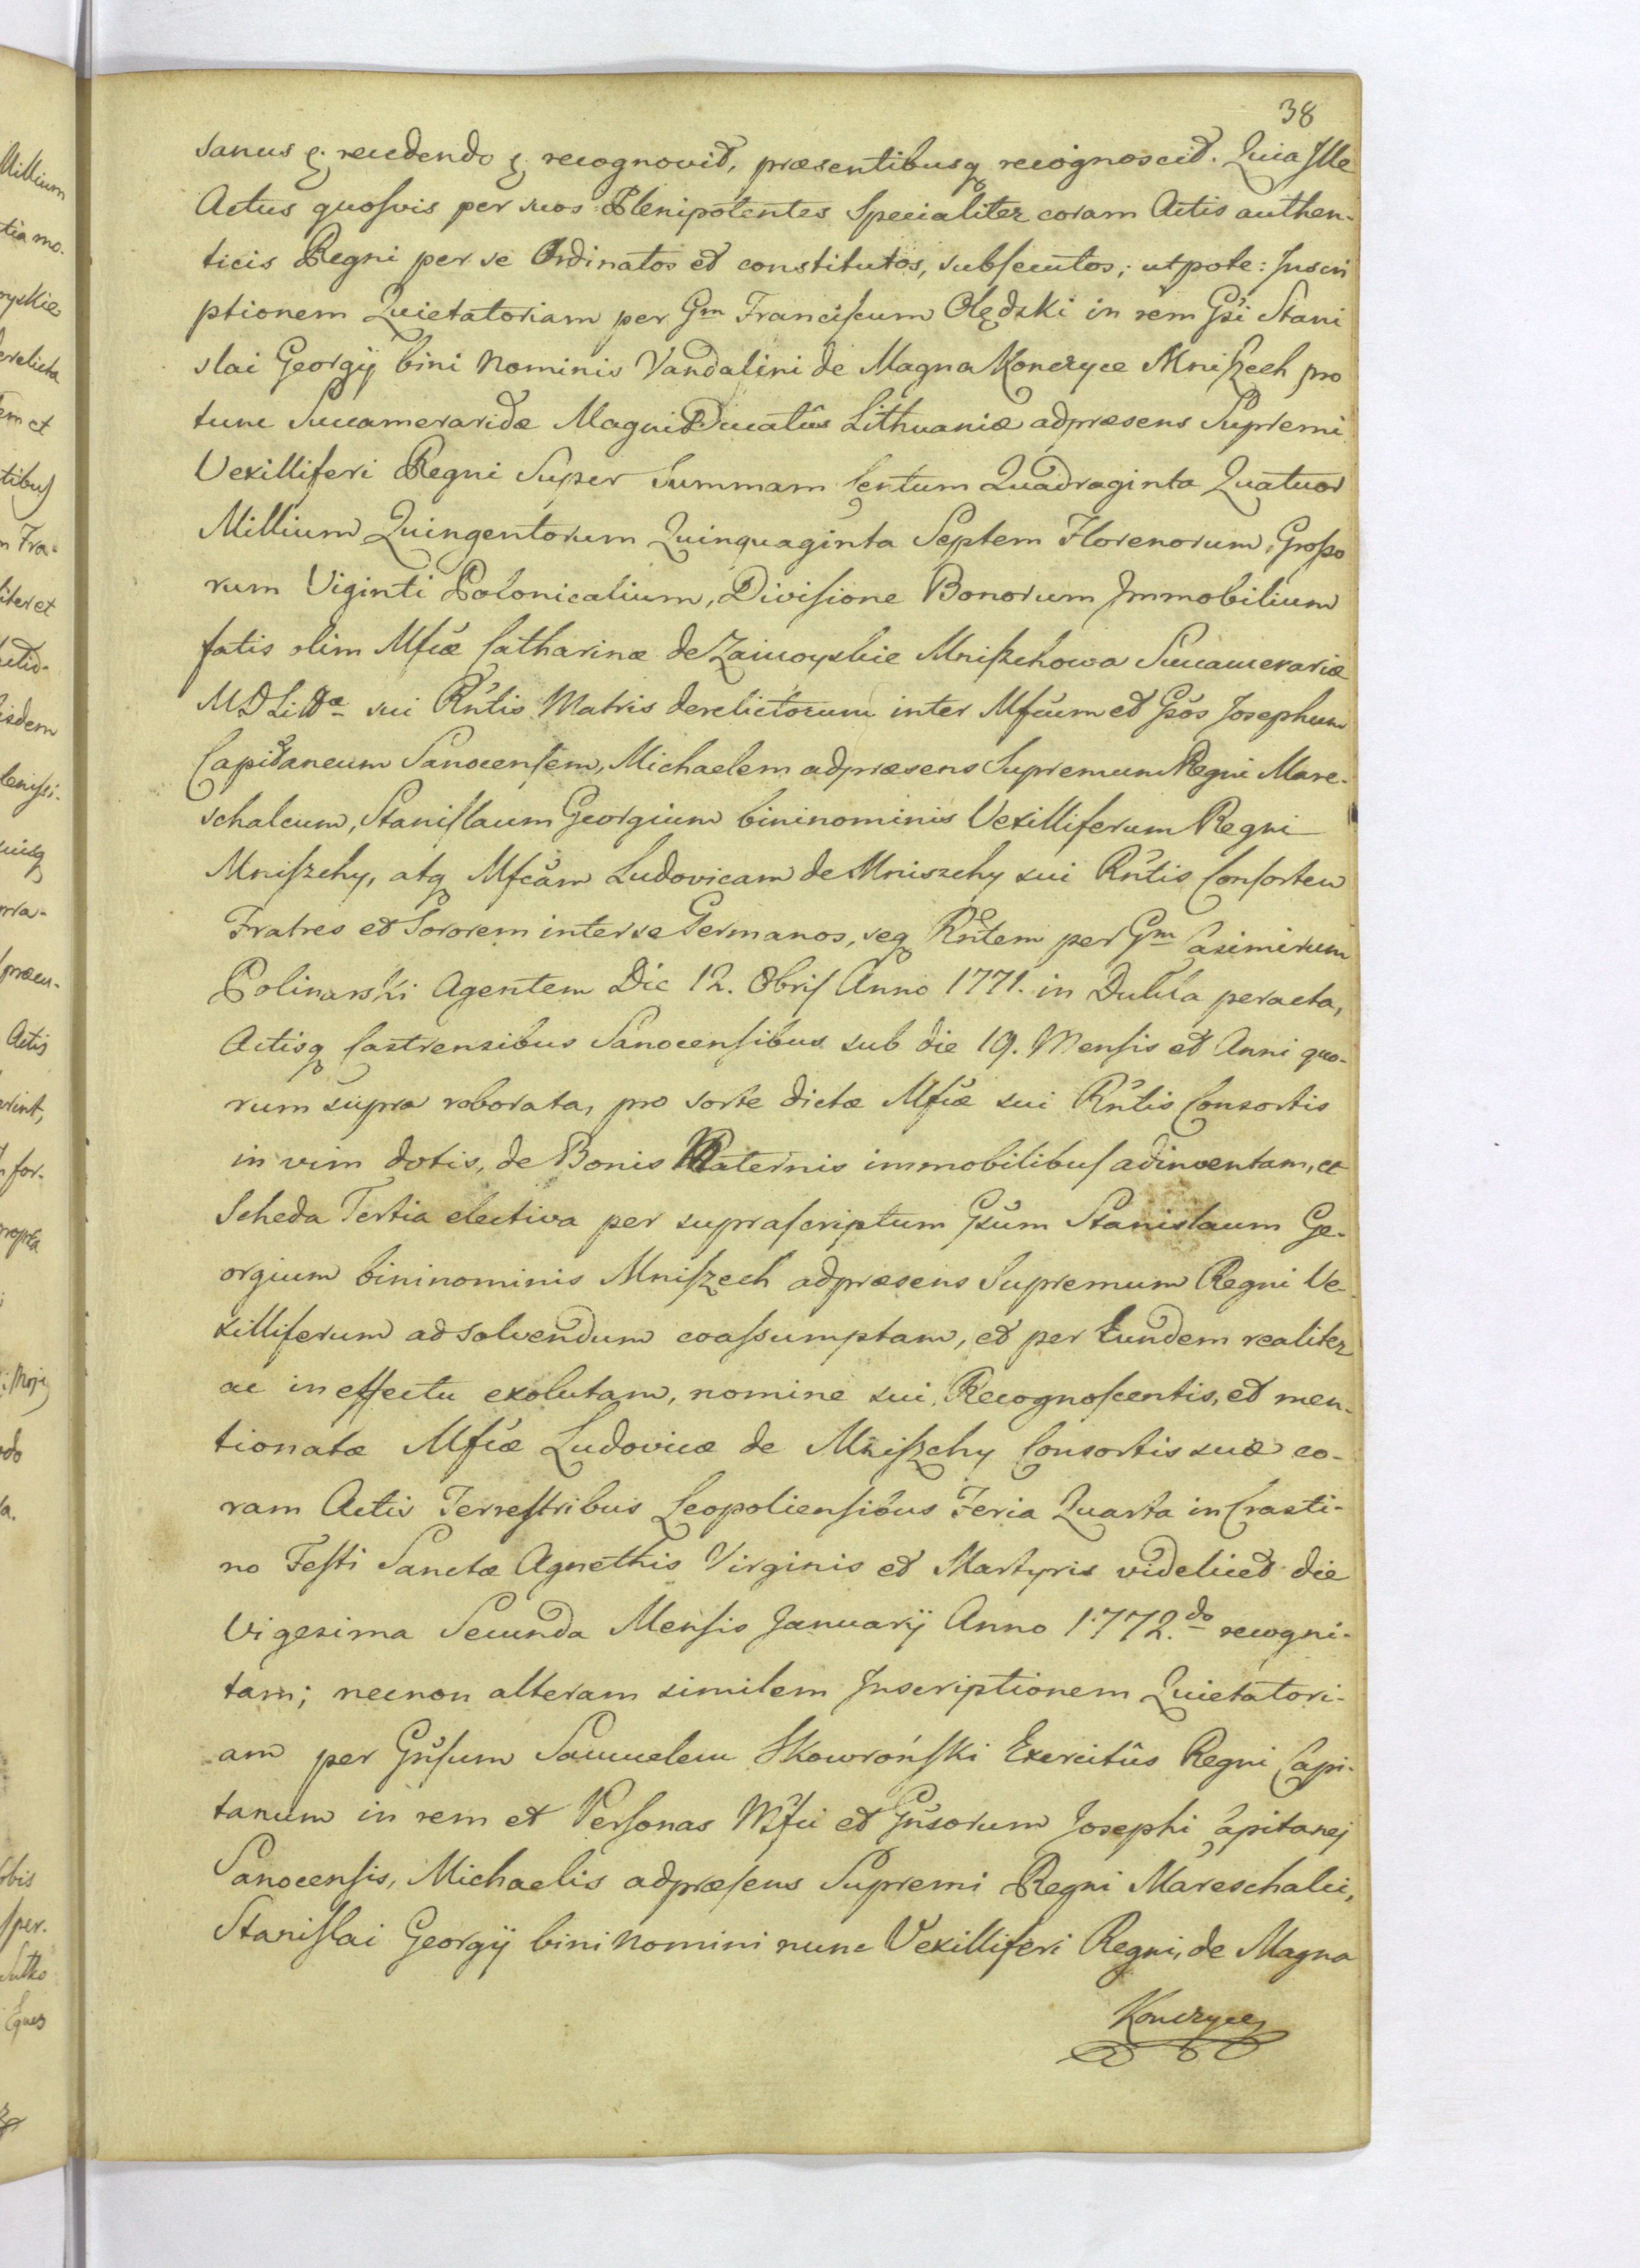 38
sanus &. recedendo &. recognovit, præsentibusq recognoscit. Quia Ille
Actus quosvis per suos Plenipotentes Specialiter coram Actis authen-
ticis Regni per se Ordinatos et constitutos, subsecutos; utpote: Inscri
ptionem Quietatoriam per Gm Franciscum Olędzki in rem Gsi Stani
slai Georgij bini Nominis Vandalini de Magna Konczyce Mniszech pro
tunc Succameraridæ Magni Ducatûs Lithuaniæ adpræsens Supremi
Vexilliferi Regni Super Summam Centum Quadraginta Quatuor
Millium Quingentorum Quinquaginta Septem Florenorum, Grosso
rum Viginti Polonicalium, Divisione Bonorum Immobilium
fatis olim Mfcæ Catharinæ de Zamoyskie Mniszchowa Succamerariæ
MDLittæ sui Rntis Matris derelictorum inter Mfcum et Gsos Josephum
Capitaneum Sanocensem, Michaelem adpræsens Supremum Regni Mare-
schalcum, Stanislaum Georgium bininominis Vexilliferum Regni
Mniszchy, atq Mfcam Ludovicam de Mniszchy sui Rntis Consortem
Fratres et Sororem inter se Germanos, seq Rntem per Gm Casimirum
Polinarski Agentem Die 12. 8bris Anno 1771. in Dukla peracta,
Actisq Castrensibus Sanocensibus sub die 19. Mensis et Anni quo-
rum supra roborata, pro sorte dictæ Mfcæ sui Rntis Consortis
in vim dotis, de Bonis Maternis immobilibus adinventam, et
Scheda Tertia electiva per suprascriptum Gsum Stanislaum Ge-
orgium bininominis Mniszech adpræsens Supremum Regni Ve-
xilliferum ad solvendum coassumptam, et per Eundem realiter
ac in effectu exolutam, nomine sui Recognoscentis, et men-
tionatæ Mfcæ Ludovicæ de Mniszchy Consortis suæ co-
ram Actis Terrestribus Leopoliensibus Feria Quarta in Crasti-
no Festi Sanctæ Agnethis Virginis et Martyris videlicet die
Vigesima Secunda Mensis Januarij Anno 1772.do recogni-
tam; necnon alteram similem Inscriptionem Quietatori-
am per Gnsum Samuelem Skowroński Exercitûs Regni Capi-
tanum in rem et Personas Mfci et Gnsorum Josephi Capitanej
Sanocensis, Michaelis adpræsens Supremi Regni Mareschalci,
Stanislai Georgij bini nomini nunc Vexilliferi Regni, de Magna
Konczyce